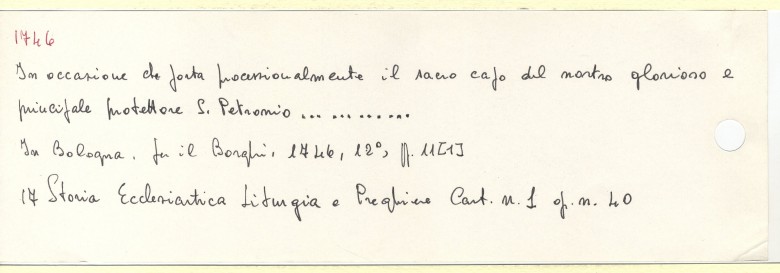 1746
In occasione che porta processionalmente il sacro capo del nostro glorioso e
principale protettore S. Petronio ... ... ... ...
In Bologna. per il Borghi, 1746, 12°, pp. 11[1]
17 Storia Ecclesiastica Liturgia e Preghiere Cart. n. 1 op. n. 40